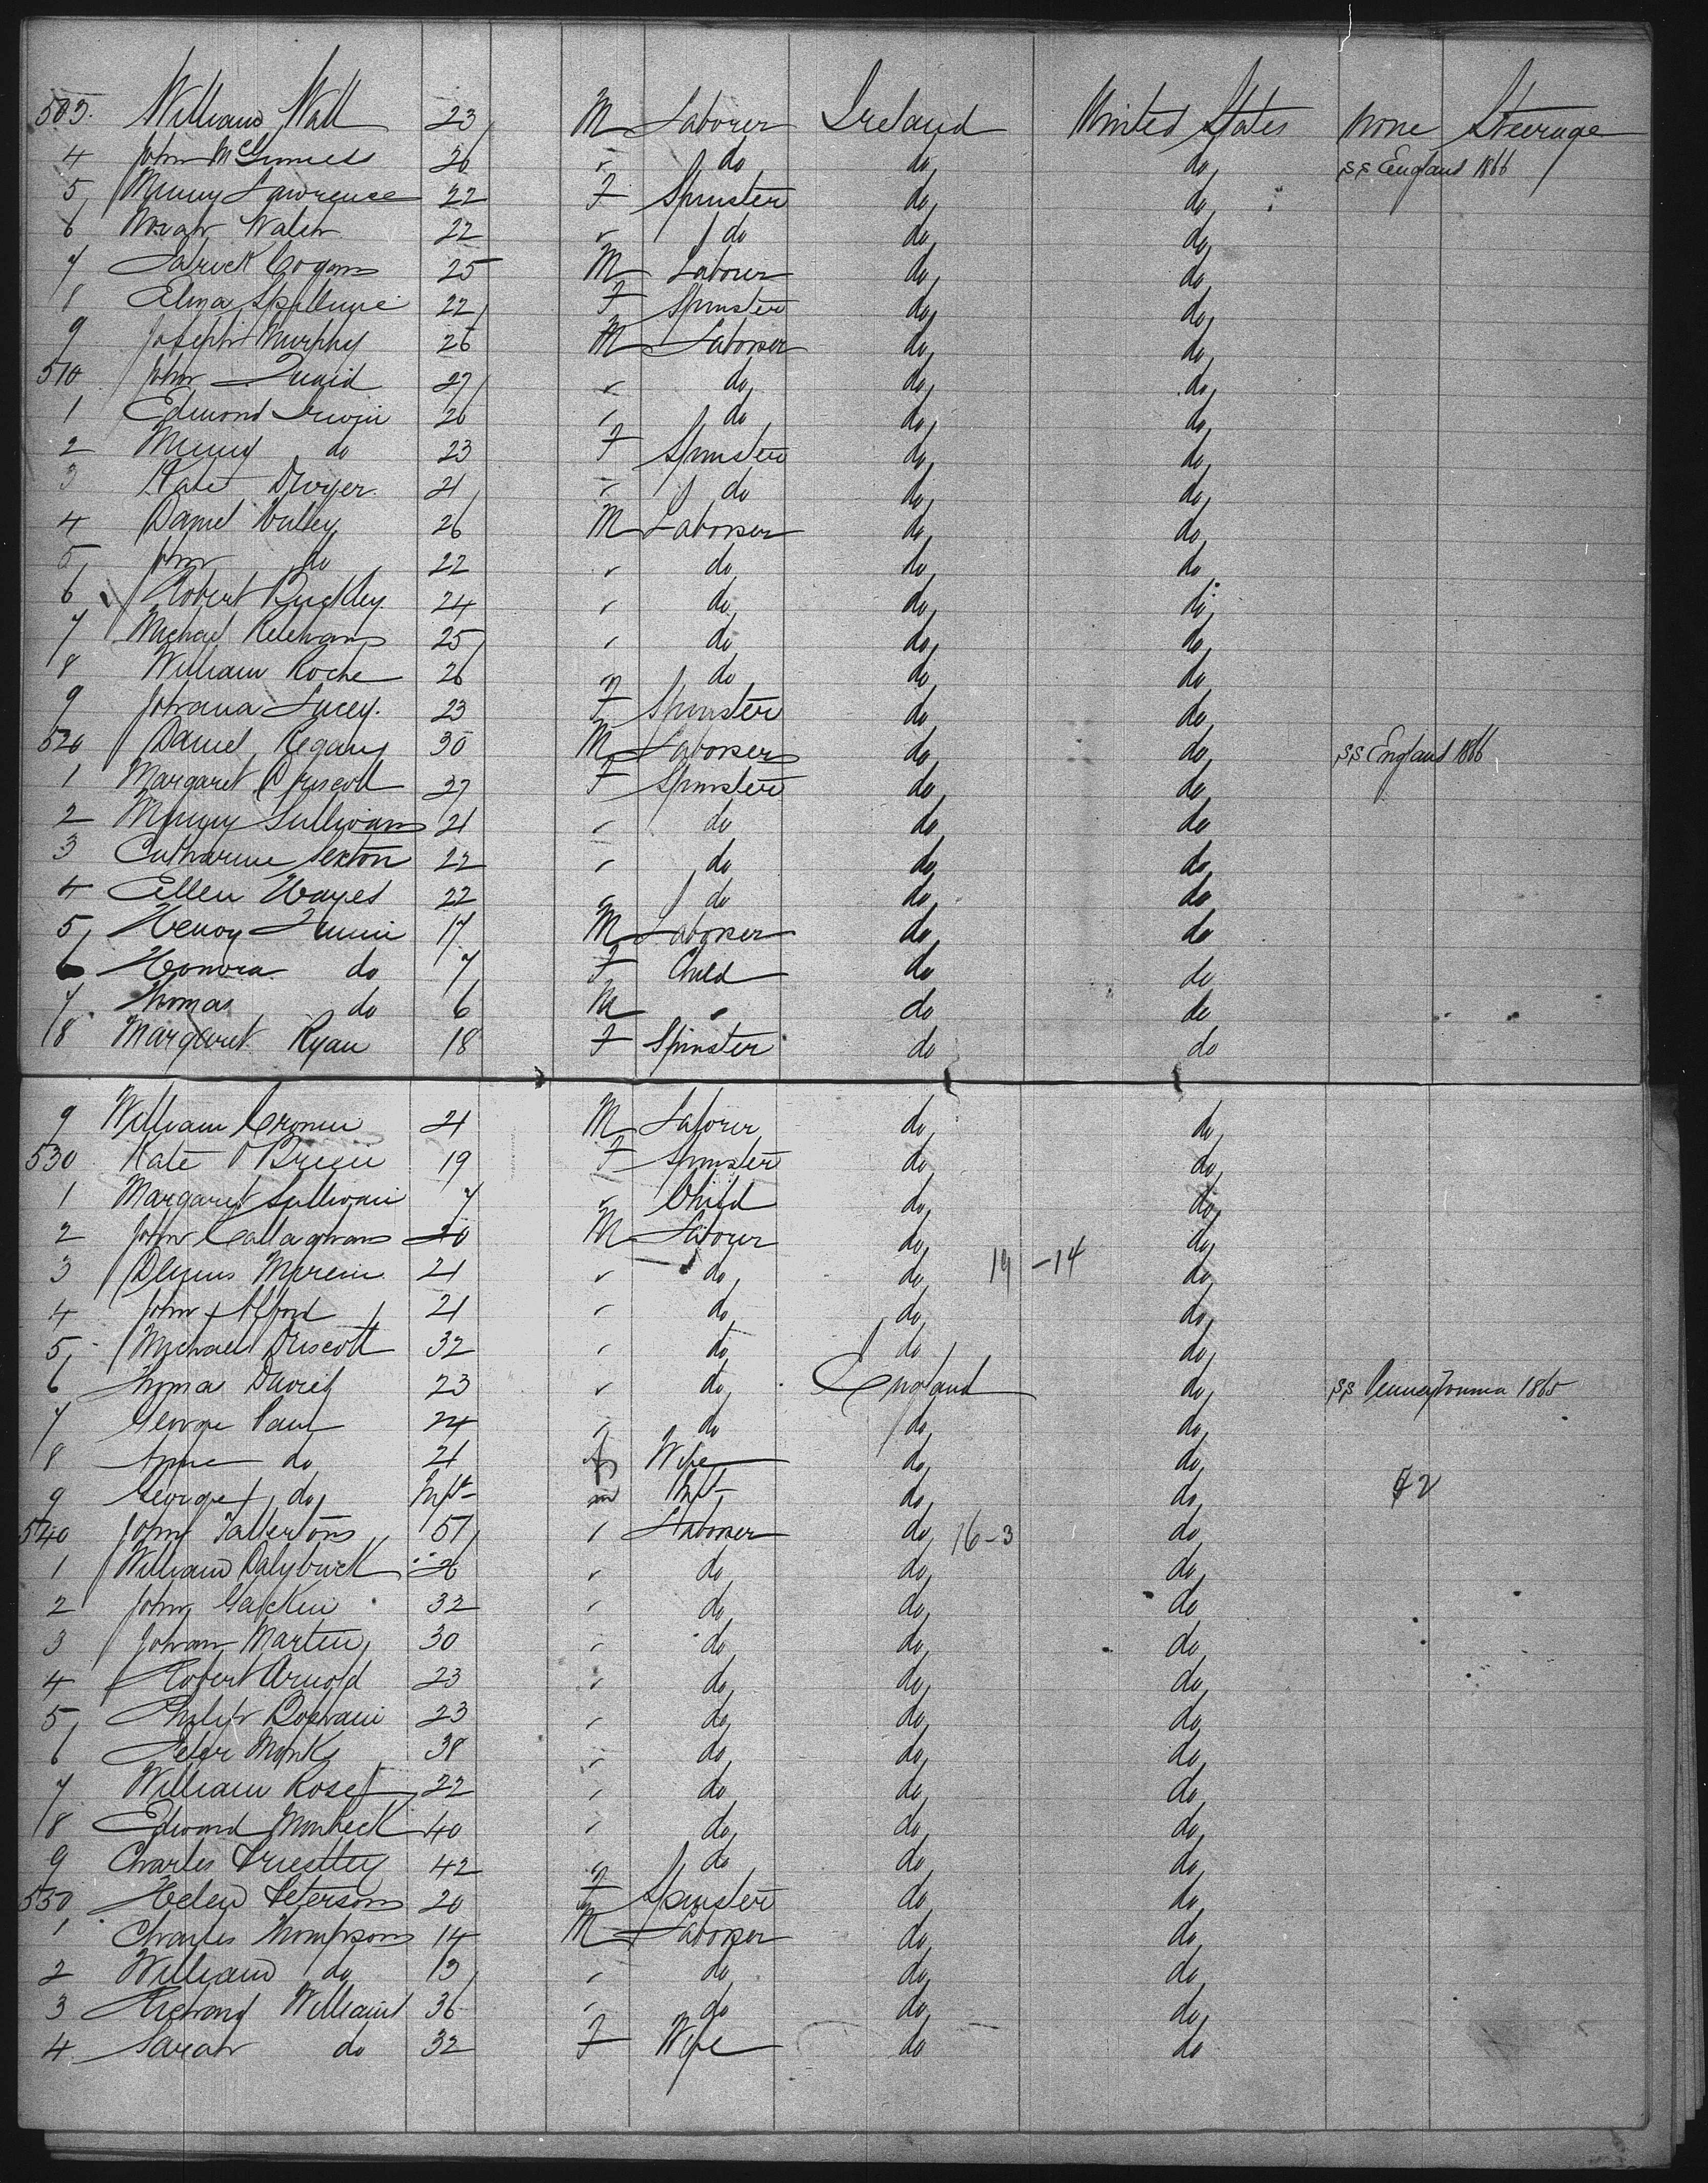 503. William Wall 23 M Laborer Ireland United States None Steerage
4 John McGuness 26 " do do do SS England 1866
5 Mary Lawrence 22 F Spinster do do
6 Norah Walsh 22 " do do do
7 Patrick Cogan 25 M Laborer do do
8 Eliza Spillane 22 F Spinster do do
9 Joseph Murphy 26 M Laborer do do
510 John Quaid 27 " do do do
1 Edmond Irwin 26 " do do do
2 Mary do 23 F Spinster do do
3 Kate Dwyer 21 " do do do
4 Daniel 26 M Laborer do do
5 John do 22 " do do do
6 Robert Buckley 24 " do do do
7 Michael Kelehan 25 " do do do
8 William Roche 26 " do do do
9 Johana Lucey. 23 F Spinster do do
520 Daniel Regan 30 M Laborer do do SS England 1866
1 Margaret Driscoll 27 F Spinster do do
2 Mary Sullivan 21 " do do do
3 Catharine Sexton 22 " do do do
4 Ellen Hayes 22 " do do do
5 Henry 17 M Laborer do do
6 Honora do 7 F Child do do
7 Thomas do 6 M " do do
8 Margaret Ryan 18 F Spinster do do
9 William Cronin 21 M Laborer do do
530 Kate O'Brien 19 F Spinster do do
1 Margaret Sullivan 7 " Child do do
2 John Callaghan 20 M Laborer do do
3 21 " do do 19 -14 do
4 John 21 " do do do
5 Michael Driscoll 32 " do do do
6 Thomas Davies 23 " do England do SS Pennsylvania 1865
7 George Paul 24 " do do do
8 Anne do 21 f Wife do do
9 George do Inft m Inft do do 52
540 John 51 " Laborer do 16-3 do
1 William 26 " do do do
2 John 32 " do do do
3 Martin 30 " do do do
4 Robert Arnold 23 " do do do
5 Philip 23 " do do do
6 Peter Monks 38 " do do do
7 William Rose 22 " do do do
8 Edward 40 " do do do
9 Charles Priestley 42 " do do do
550 Helen Peterson 20 F Spinster do do
1 Charles Thompson 14 M Laborer do do
2 William do 13 " do do do
3 Richard William 36 " do do do
4 Sarah do 32 F Wife do do